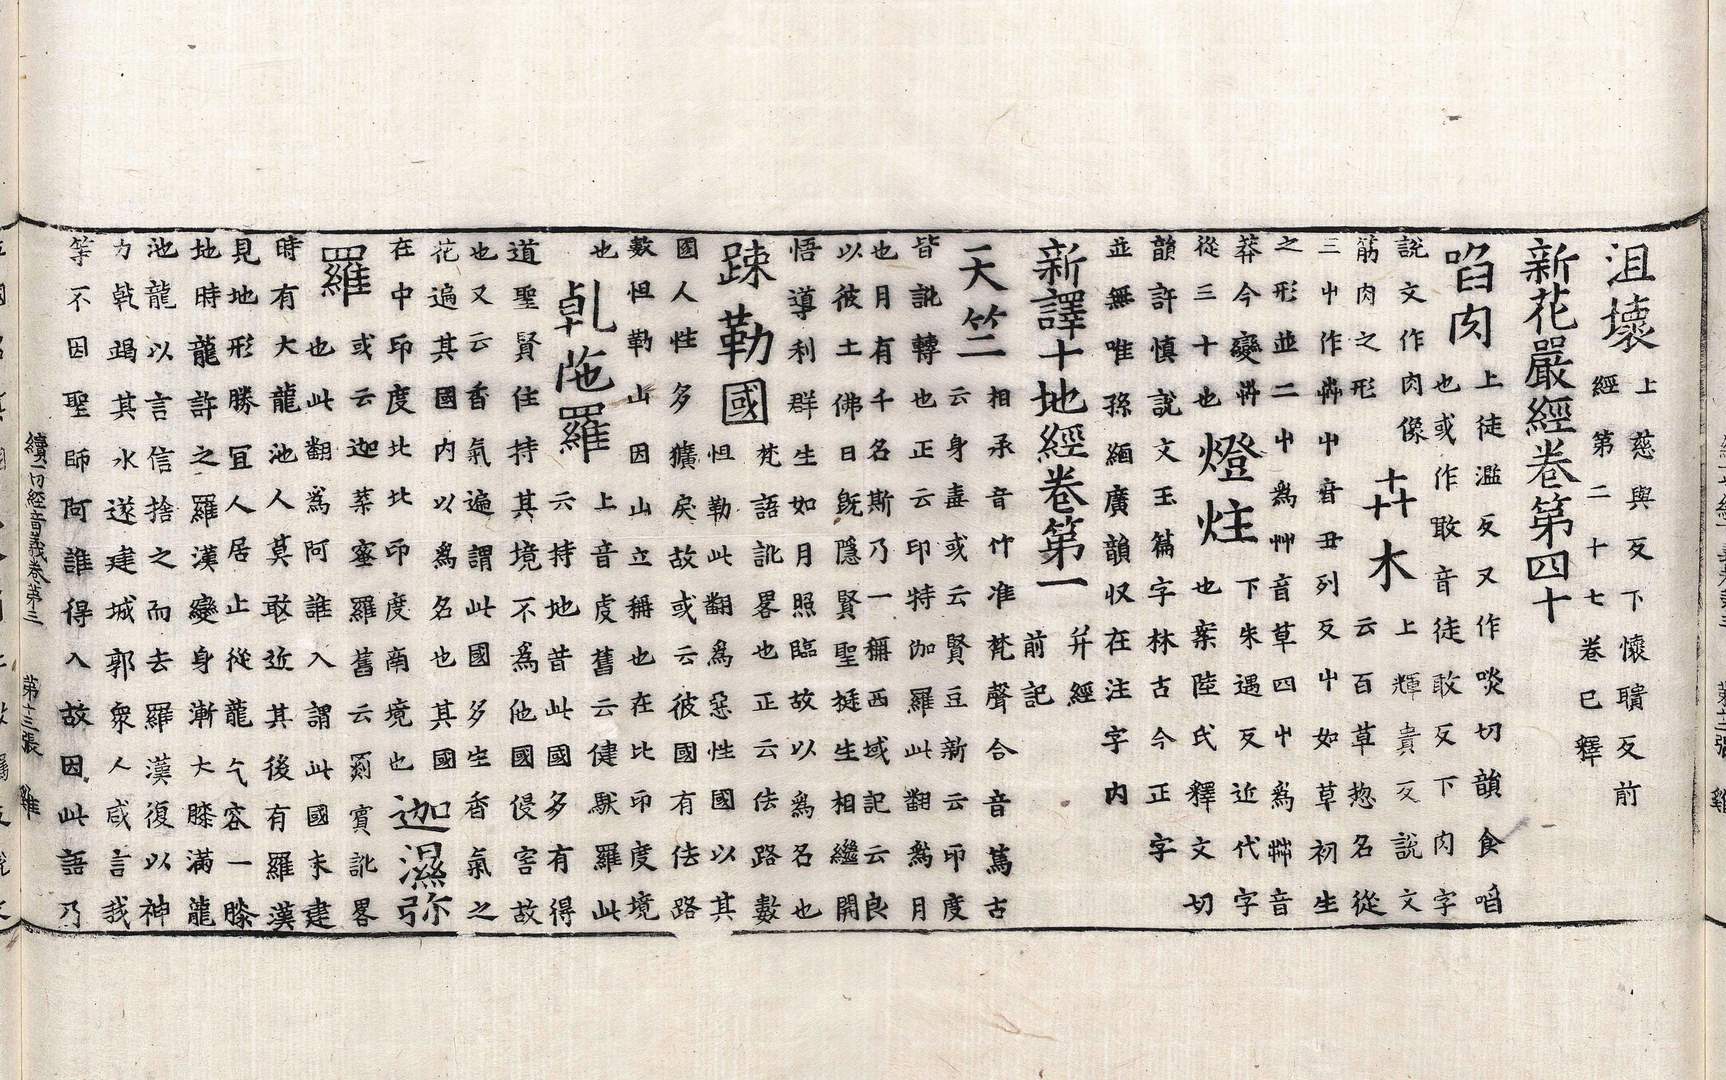 沮壞
上慈與反下懷聵反前
經第二十七卷已釋
新花嚴經卷第四十
啗肉
上徒濫反又作啖切韻食啗
也或作敢音徒敢反下肉字
說文作肉像
筋肉之形
卉木
上輝貴反說文
云百草惣名從
三屮作芔屮音丑列反屮如草初生
之形並二屮為艸音草四屮為茻音
莽今變卉
從三十也
燈炷
下朱遇反近代字
也案陸氏釋文切
韻許慎說文玉篇字林古今正字
並無唯孫緬廣韻収在注字內
新譯十地經卷第一
并經
前記
天竺
相承音竹准梵聲合音篤古
云身毒或云賢豆新云印度
皆訛轉也正云印特伽羅此翻為月
也月有千名斯乃一稱西域記云良
以彼土佛日既隱賢聖挺生相繼開
悟導利群生如月照臨故以為名也
踈勒國
梵語訛畧也正云佉路數
怛勒此翻為惡性國以其
國人性多獷戾故或云彼國有佉路
數怛勒山因山立稱也在北印度境
也
乹陁羅
上音虔舊云健馱羅此
云持地昔此國多有得
道聖賢住持其境不為他國侵害故
也又云香氣遍謂此國多生香氣之
花遍其國內以為名也其國
在中印度北北印度南境也
迦濕弥
羅
或云迦葉蜜羅舊云罽賓訛畧
也此翻為阿誰入謂此國未建
時有大龍池人莫敢近其後有羅漢
見地形勝冝人居止從龍乞容一膝
地時龍許之羅漢變身漸大膝滿龍
池龍以言信捨之而去羅漢復以神
力乹竭其水遂建城郭眾人咸言我
等不因聖師阿誰得入故因此語乃
續一切經音義卷第三 第十三張 雞